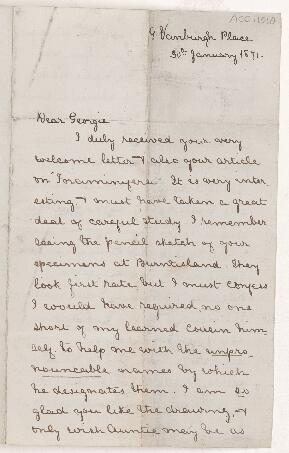 ACC.1019
9 Vanburgh Place
30th January 1871.
Dear Georgie
I duly received your very
welcome letter & also your article
on Foraminifera. It is very inter-
esting & must have taken a great
deal of careful study. I remember
seeing the pencil sketch of your
specimens at Burntisland. They
look first rate but I must confess
I would have required no one
short of my learned cousin him-
self to help me with the unpro-
nounceable names by which
he designates them. I am so
glad you like the drawing, &
only wish Auntie may be as